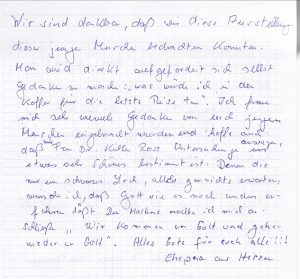 Wir sind dankbar, daß wir diese Ausstellung
dieser junge Mensche beobachten konnten.
Man wird direkt aufgefordert sich selbst
Gedanken zu machen: „was würde ich in den
Koffer für die letzte Reise tun". Ich freue
mich sehr wieviele Gedanken von euch jungen
Menschen eingebracht wurden und hoffe auch
daß Frau Dr. Kübler Ross Untersuchungen aussagen, uns
etwas sehr schönes bestimmt ist. Denen die
nur ein schwarzes Loch, alles garnichts, erwarten,
wünsche ich, daß Gott sie es noch anders er-
fahren läßt. möchte ich mich an-
schließen „Wir kommen von Gott und gehen
wieder zu Gott". Alles Gute für euch alle!!!
Ehepaar aus Hessen